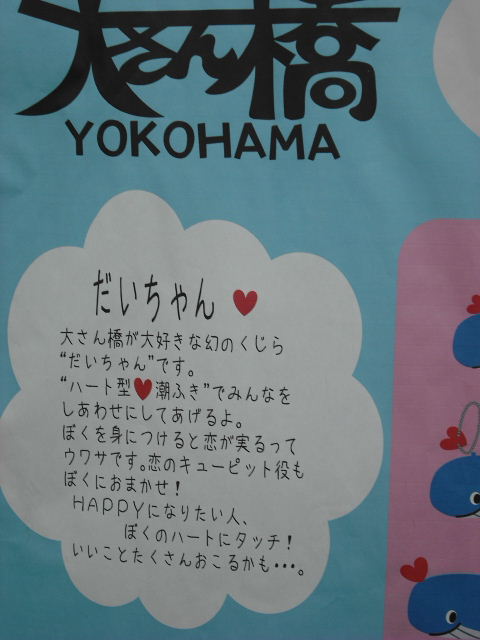 大さん橋
YOKOHAMA
だいちゃん♥
大さん橋が大好きな幻のくじら
“だいちゃん”です。
“ハート型♥潮ふき”でみんなを
しあわせにしてあげるよ。
ぼくを身につけると恋が実るって
ウワサです。恋のキューピット役も
ぼくにおまかせ!
HAPPYになりたい人、
ぼくのハートにタッチ!
いいことたくさんおこるかも・・・。